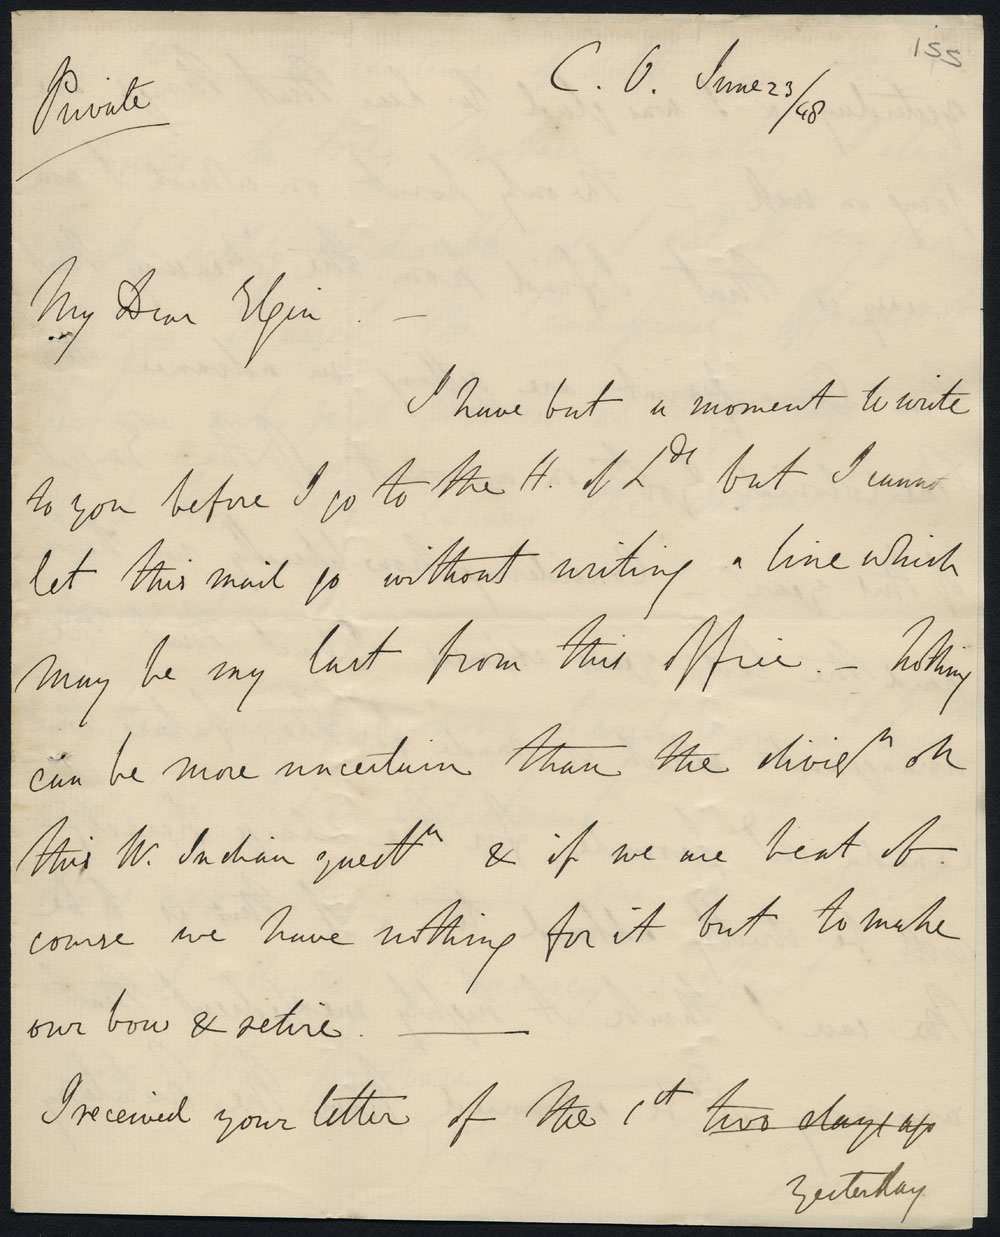 155
Private
C. O. June 23/48
My Dear Elgin. —
I have but a moment to write
to you before I go to the H. of Lds but I cannot
let this mail go without writing a line which
may be my last from this Office. — Nothing
can be more uncertain than the divisn on
this W. Indian questn & if we are beat of
course we have nothing for it but to make
our bow & retire. —
I received your letter of the 1st two days ago
yesterday